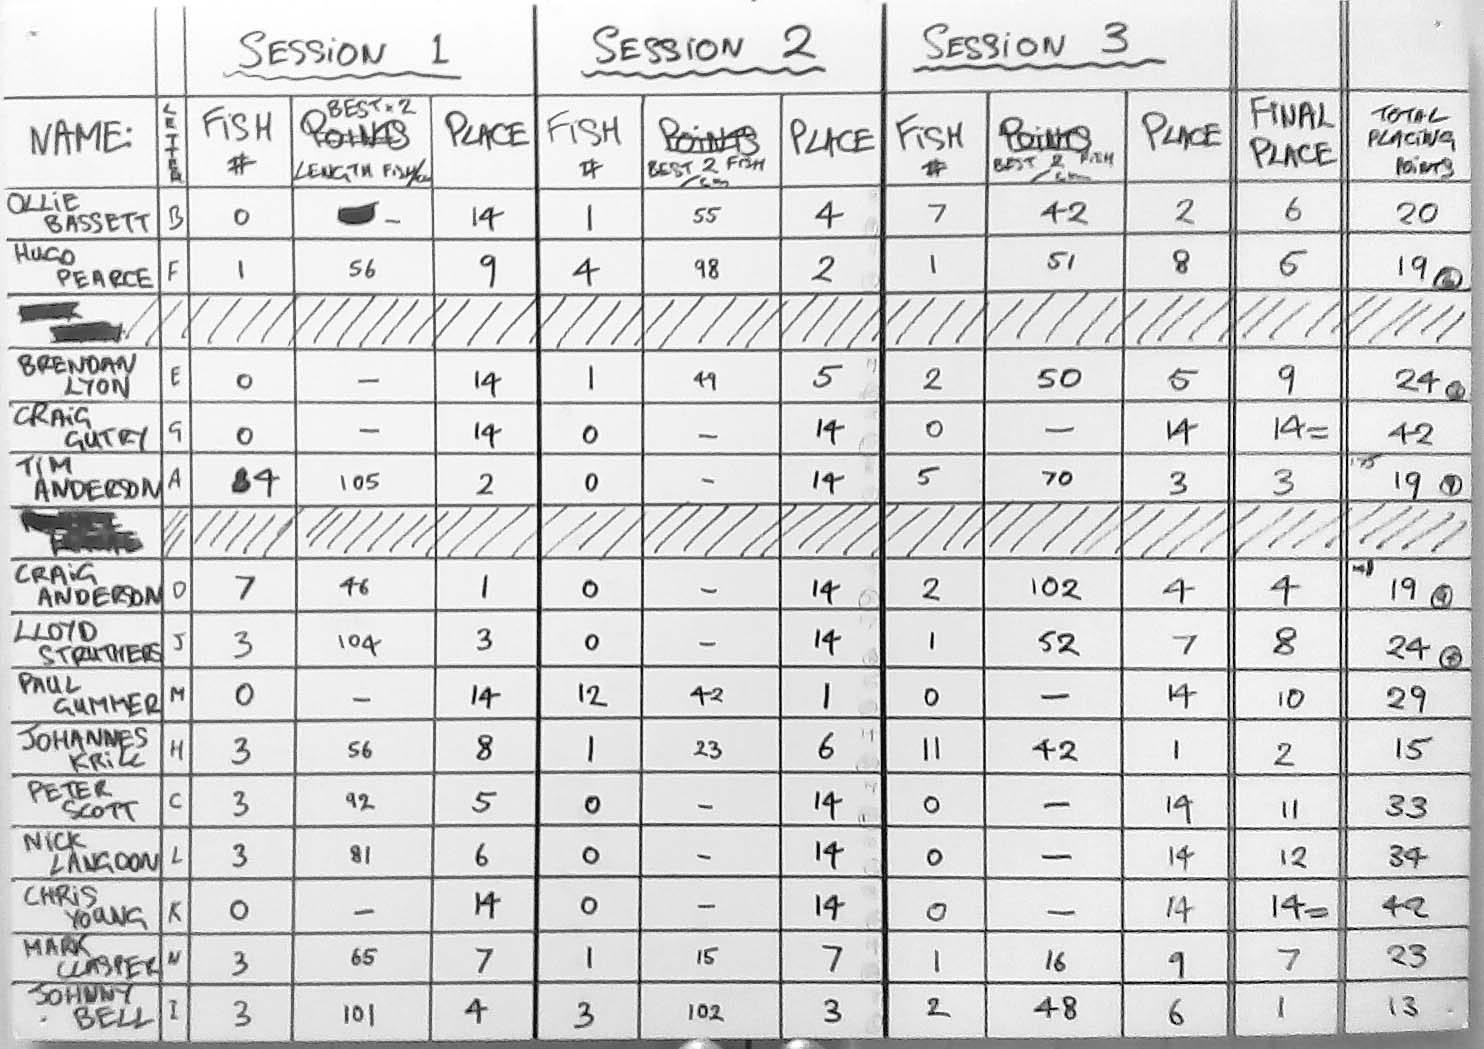 SESSION 1 SESSION 2 SESSION 3
NAME: LETTER FISH # BEST x 2 POINTS LENGTH FISH/cm PLACE FISH # POINTS BEST 2 FISH /cm PLACE FISH # POINTS BEST 2 FISH /cm PLACE FINAL PLACE TOTAL PLACING POINTS
OLLIE BASSETT B 0 - 14 1 55 4 7 42 2 6 20
HUGO PEARCE F 1 56 9 4 98 2 1 51 8 5 19
BRENDAN LYON E 0 - 14 1 49 5 2 50 5 9 24
CRAIG GUTRY G 0 - 14 0 - 14 0 - 14 14= 42
TIM ANDERSON A 4 105 2 0 - 14 5 70 3 3 19
CRAIG ANDERSON D 7 46 1 0 - 14 2 102 4 4 19
LLOYD STRUTHERS J 3 104 3 0 - 14 1 52 7 8 24
PAUL GUMMER M 0 - 14 12 42 1 0 - 14 10 29
JOHANNES KRILL H 3 56 8 1 23 6 11 42 1 2 15
PETER SCOTT C 3 92 5 0 - 14 0 - 14 11 33
NICK LANGDON L 3 81 6 0 - 14 0 - 14 12 34
CHRIS YOUNG K 0 - 14 0 - 14 0 - 14 14= 42
MARK CLASPER N 3 65 7 1 15 7 1 16 9 7 23
JOHNNY BELL I 3 101 4 3 102 3 2 48 6 1 13